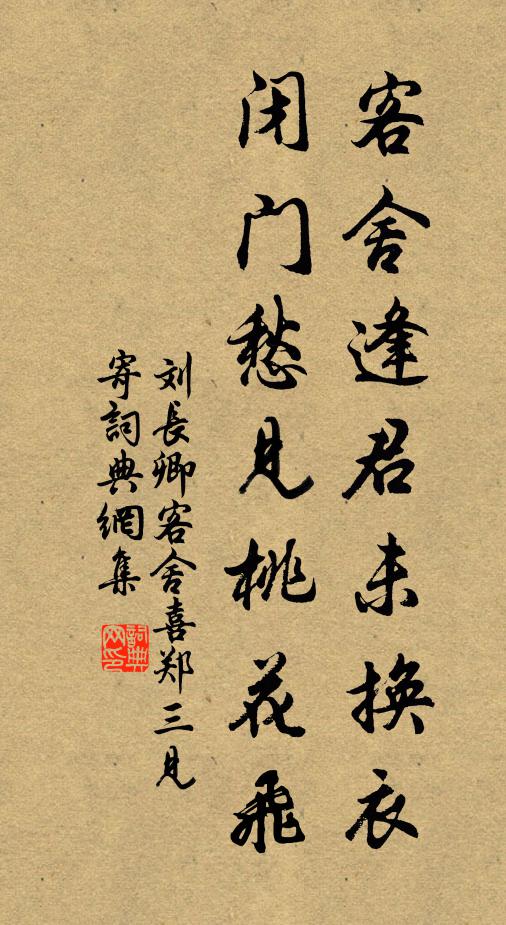 客舍逢君未换衣
闭门愁见桃花飞
刘長卿客舍喜郑三见
寄詞典網集
詞典网印